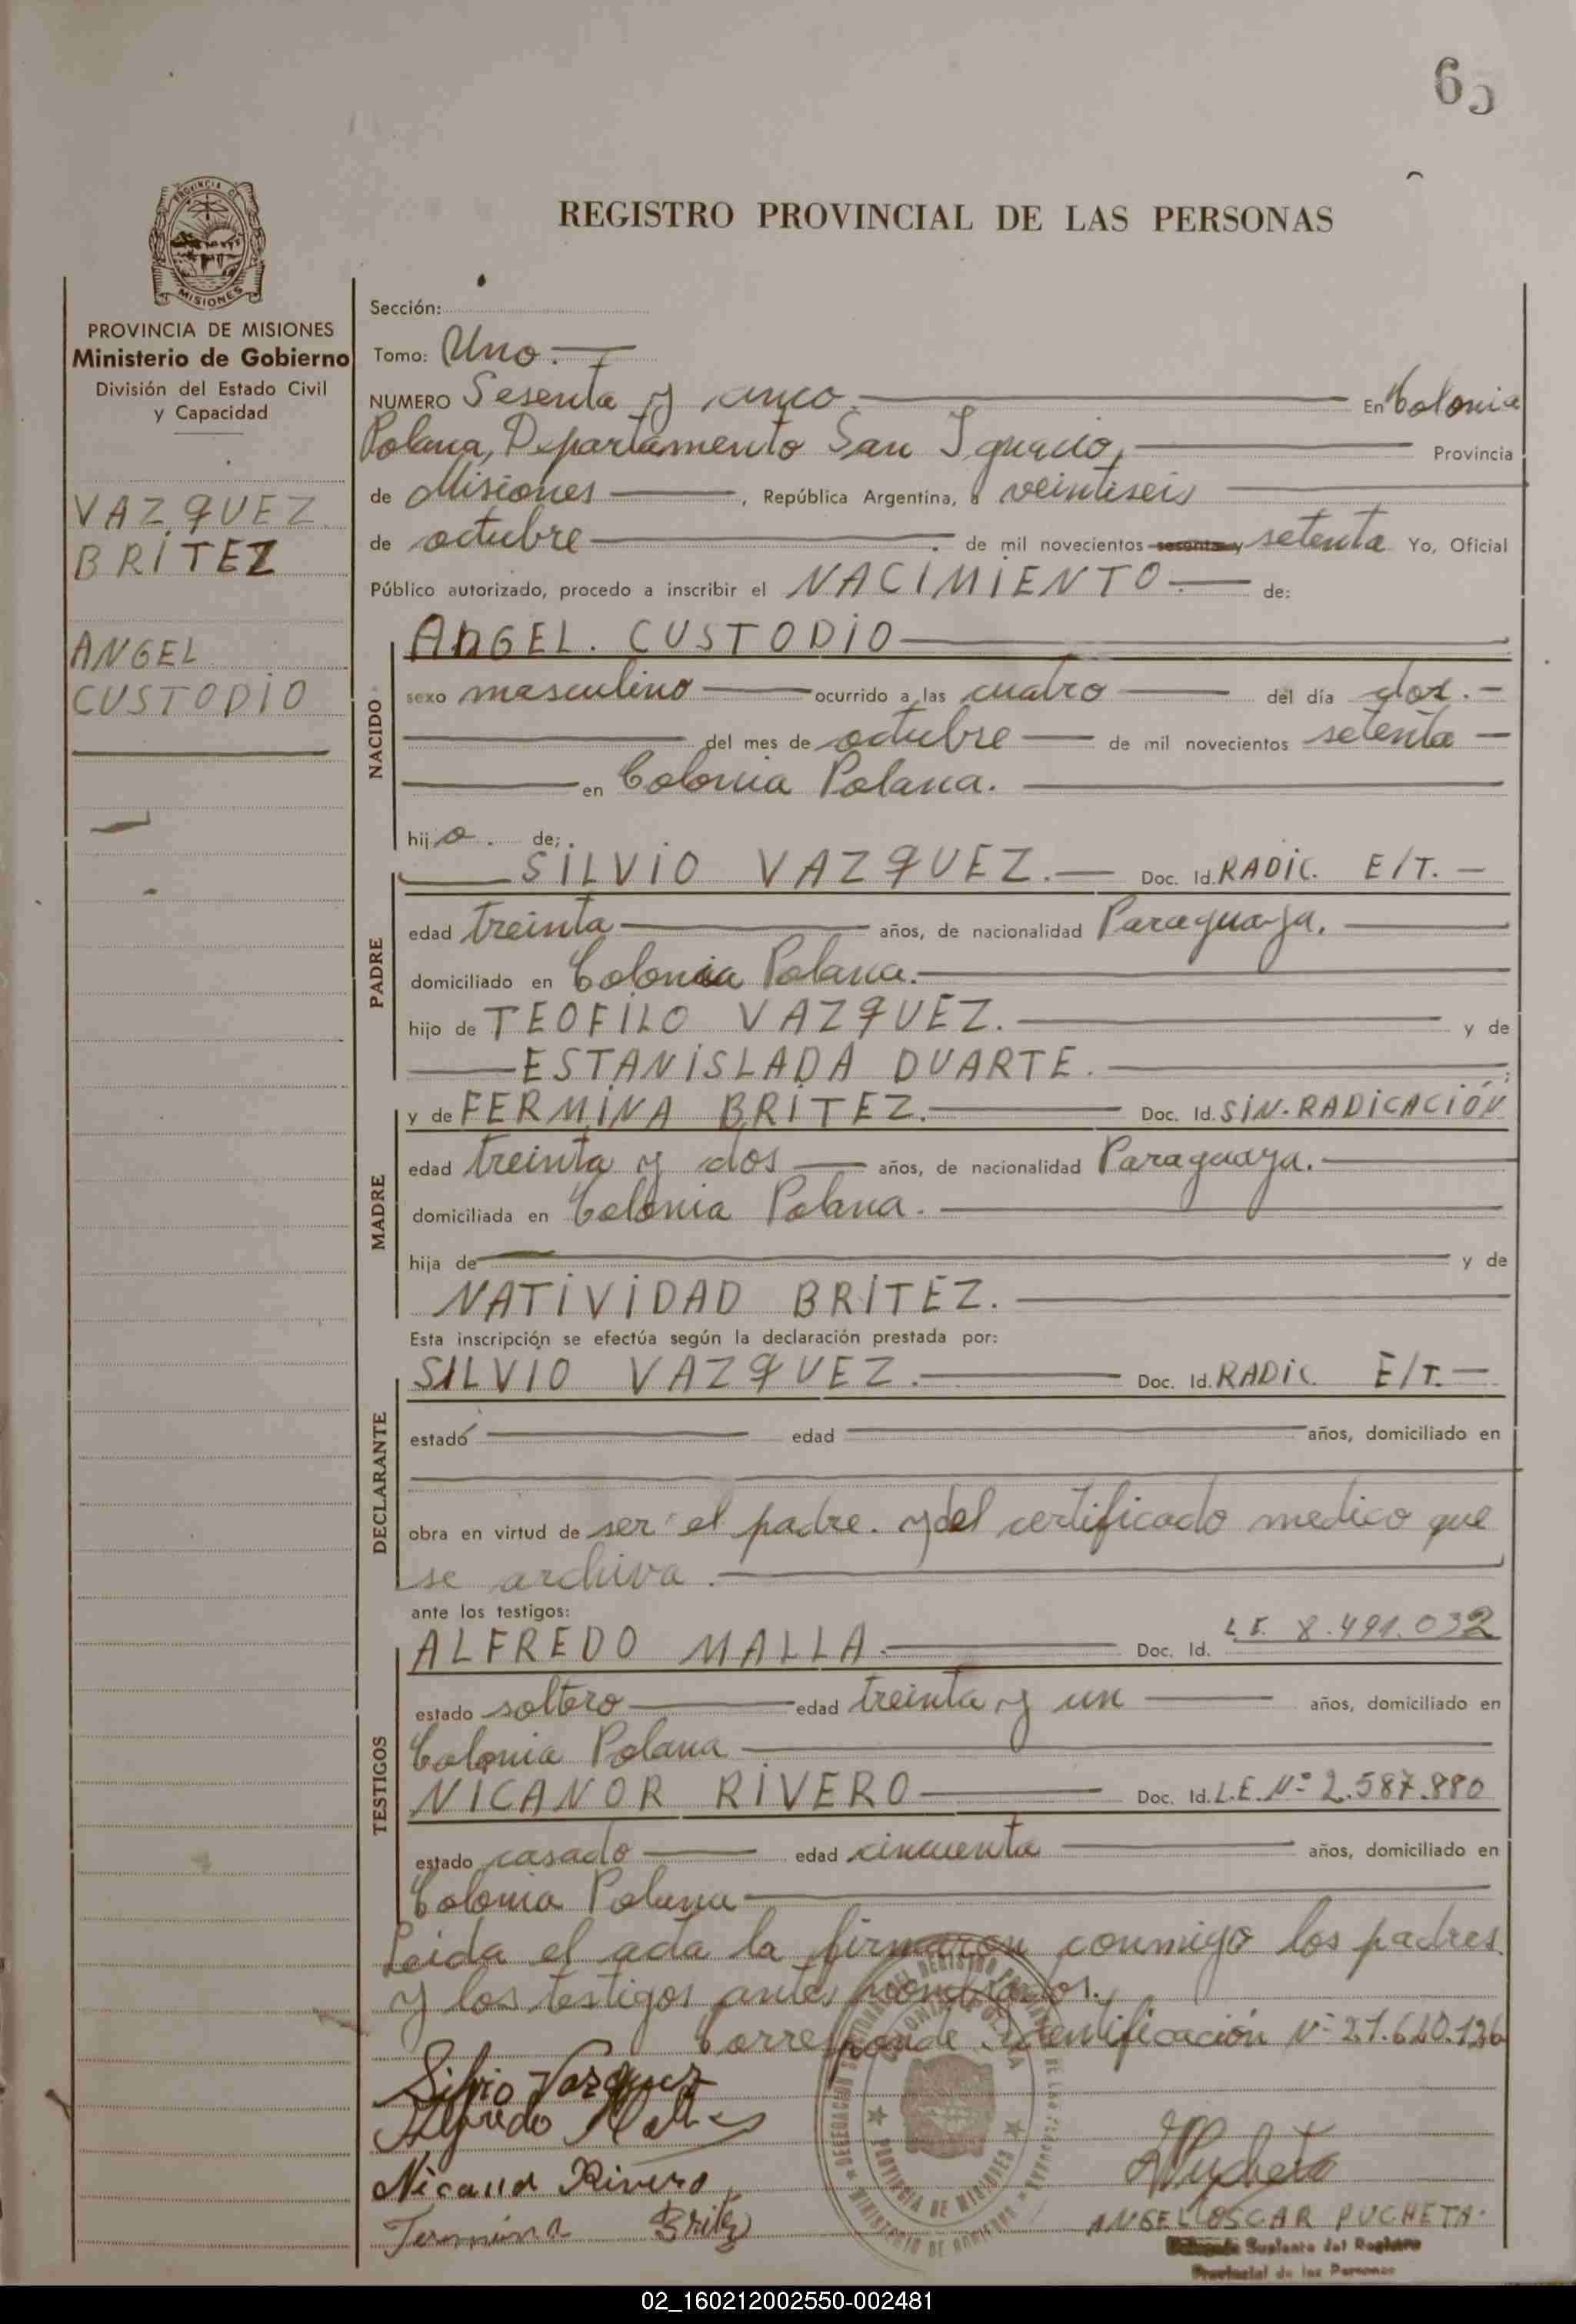 65
REGISTRO PROVINCIAL DE LAS PERSONAS
PROVINCIA DE MISIONES
MISIONES
Ministerio de Gobierno
División del Estado Civil
y Capacidad
VAZQUEZ
BRITEZ
ANGEL
CUSTODIO
Sección:
Tomo: Uno.
NUMERO Sesenta y cinco. En Colonia
Polana, Departamento San Ignacio, Provincia
de Misiones, República Argentina, a veintiseis
de octubre. de mil novecientos sesenta y setenta Yo, Oficial
Público autorizado, procedo a inscribir el NACIMIENTO. de:
NACIDO
ANGEL. CUSTODIO
sexo masculino ocurrido a las cuatro del día dos.
del mes de octubre de mil novecientos setenta
en Colonia Polana.
hijo. de:
PADRE
SILVIO VAZQUEZ. Doc. Id. RADIC. E/T.
edad treinta años, de nacionalidad Paraguaya.
domiciliado en Colonia Polana.
hijo de TEOFILO VAZQUEZ. y de
ESTANISLADA DUARTE. ;
MADRE
y de FERMINA BRITEZ. Doc. Id. SIN-RADICACIÓN
edad treinta y dos años, de nacionalidad Paraguaya.
domiciliada en Colonia Polana.
hija de y de
NATIVIDAD BRITEZ.
Esta inscripción se efectúa según la declaración prestada por:
DECLARANTE
SILVIO VAZQUEZ. Doc. Id. RADIC. E/T.
estado edad años, domiciliado en
obra en virtud de ser el padre. y del certificado medico que
se archiva.
ante los testigos:
TESTIGOS
ALFREDO MALLA. Doc. Id. L.E. 8.491.032
estado soltero edad treinta y un años, domiciliado en
Colonia Polana
NICANOR RIVERO Doc. Id. L.E. Nº 2.587.880
estado casado edad cincuenta años, domiciliado en
Colonia Polana
Leida el acta la firmaron conmigo los padres
y los testigos antes nombrados.
Corresponde Identificación Nº 21.610.136
Silvio Vazquez
Alfredo Malla
Nicanor Rivero
Fermina Britez
PROVINCIA DE MISIONES
ANGEL OSCAR PUCHETA.
Suplente del Registro
Provincial de las Personas
02_160212002550-002481